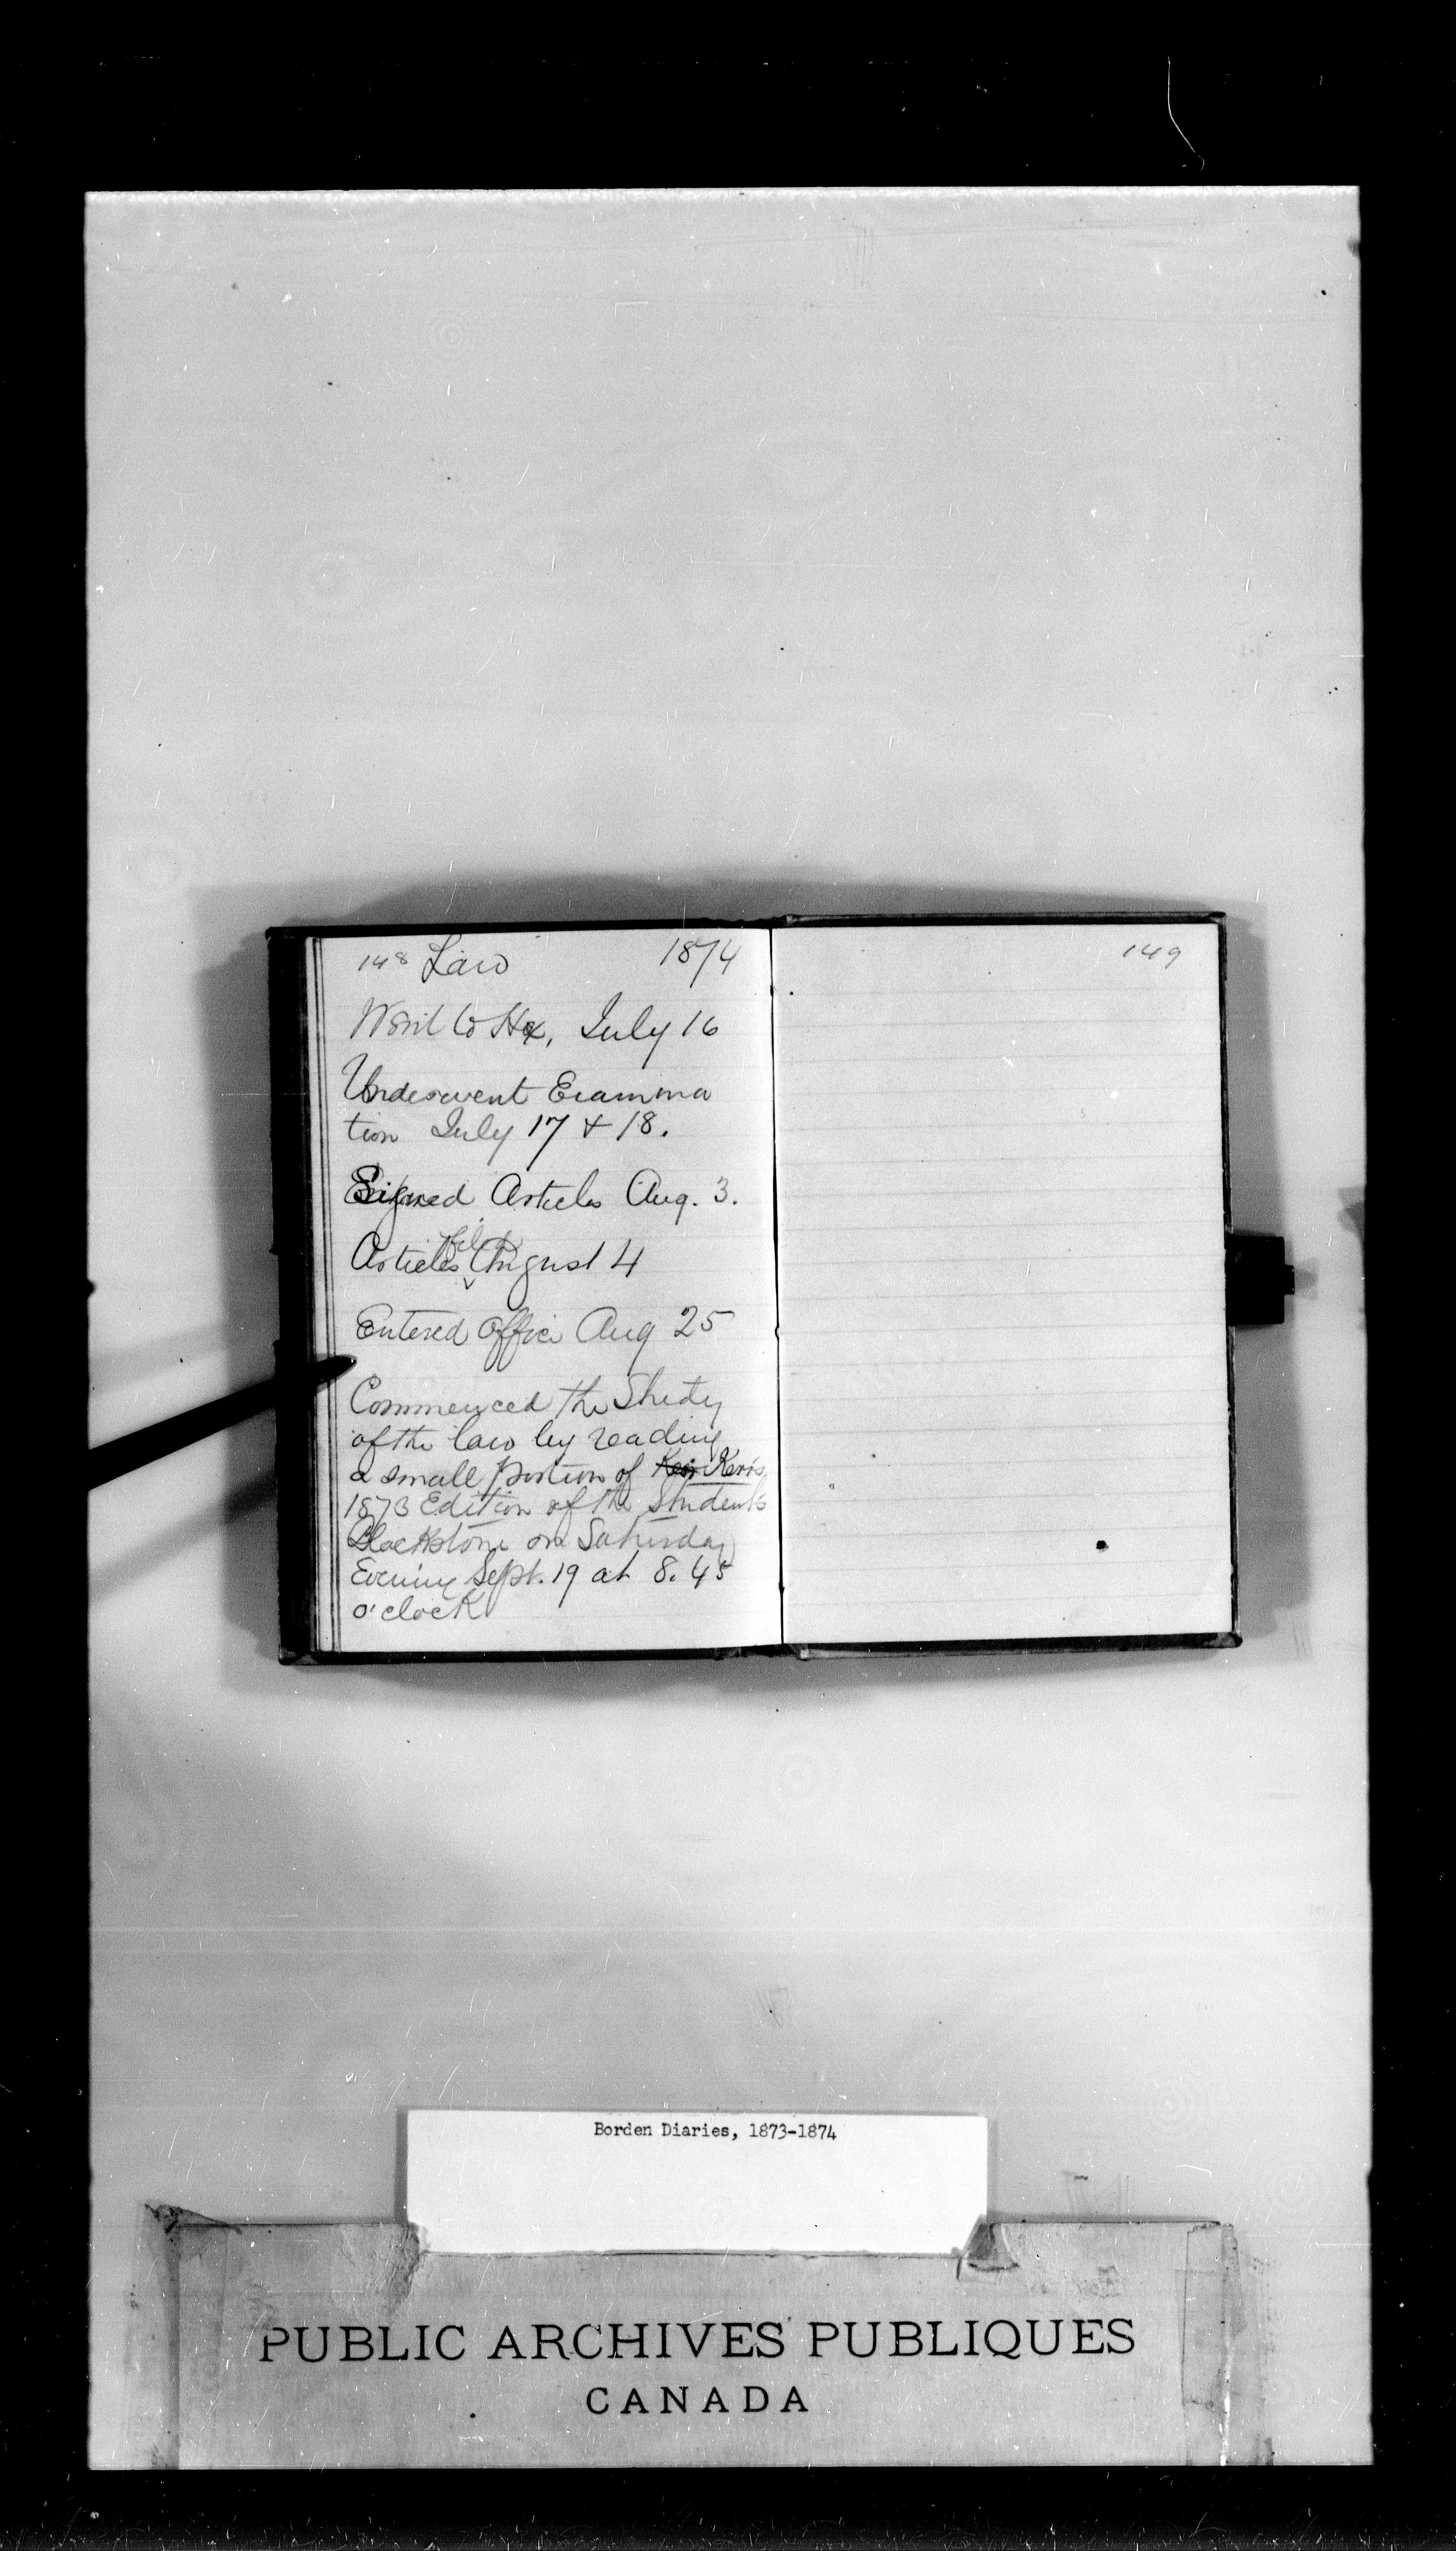 148 Law 1874
Went to Hx, July 16
Underwent Examina
tion July 17 & 18.
Signed Articles Aug. 3.
Articles filed August 4
Entered office Aug 25
Commenced the Study
of the law by reading
a small portion of Kerr's
1873 Edition of the Student's
Blackstone on Saturday
Evening Sept. 19 at 8.45
o'clock
149
Borden Diaries, 1873-1874
PUBLIC ARCHIVES PUBLIQUES
CANADA